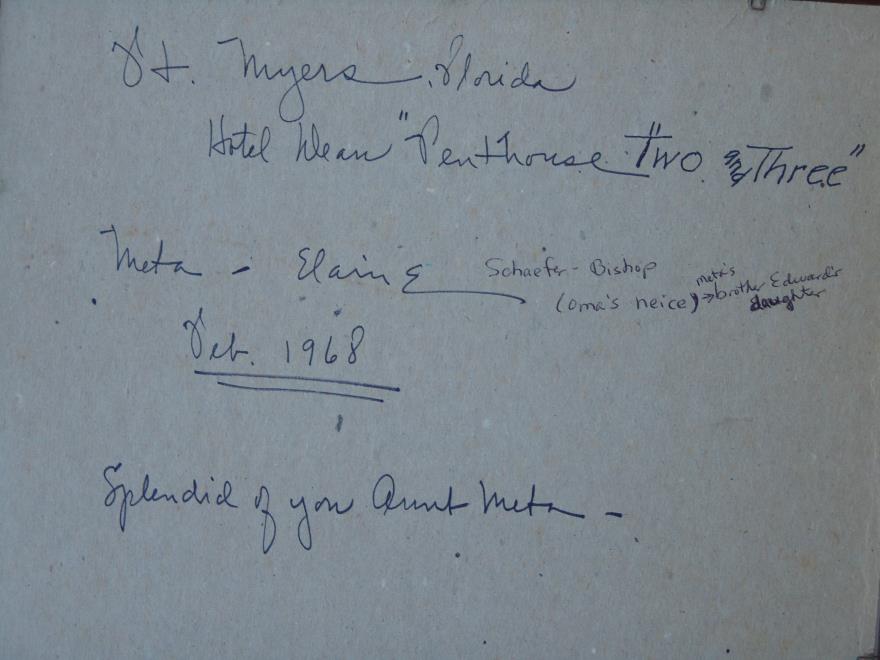 Ft. Myers, Florida
Hotel Dean "Penthouse Two and Three"
Meta - Elaine Schaefer-Bishop
(oma's neice) → meta's brother Edward's daughter
Feb. 1968
Splendid of you Aunt Meta -